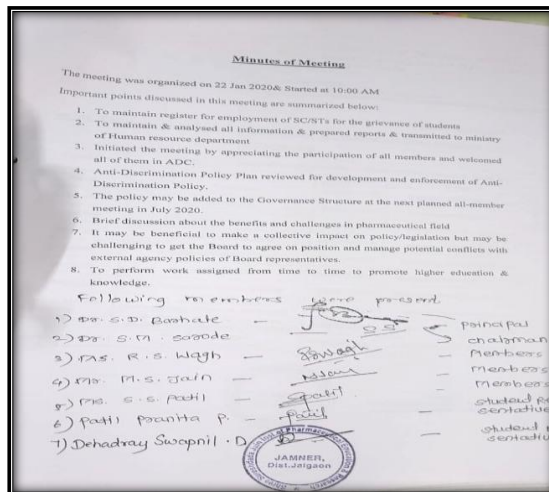 Minutes of Meeting
The meeting was organized on 22 Jan 2020& Started at 10:00 AM
Important points discussed in this meeting are summarized below:
1. To maintain register for employment of SC/STs for the grievance of students
2. To maintain & analysed all information & prepared reports & transmitted to ministry
of Human resource department
3. Initiated the meeting by appreciating the participation of all members and welcomed
all of them in ADC.
4. Anti-Discrimination Policy Plan reviewed for development and enforcement of Anti-
Discrimination Policy.
5. The policy may be added to the Governance Structure at the next planned all-member
meeting in July 2020.
6. Brief discussion about the benefits and challenges in pharmaceutical field
7. It may be beneficial to make a collective impact on policy/legislation but may be
challenging to get the Board to agree on position and manage potential conflicts with
external agency policies of Board representatives.
8. To perform work assigned from time to time to promote higher education &
knowledge.
Following members were present
1) Dr. S.D. Barhate - principal
2) Dr. S.M. Sarode - chairman
3) Ms. R.S. Wagh - RWagh - Members
4) Mr. M.S. Jain - - Members
5) Ms. S.S. Patil - Spatil - Members
6) Patil Pranita P. - Patil - student
sentative
7) Dehadray Swapnil.D. - student
sentative
JAMNER,
Dist.Jalgaon